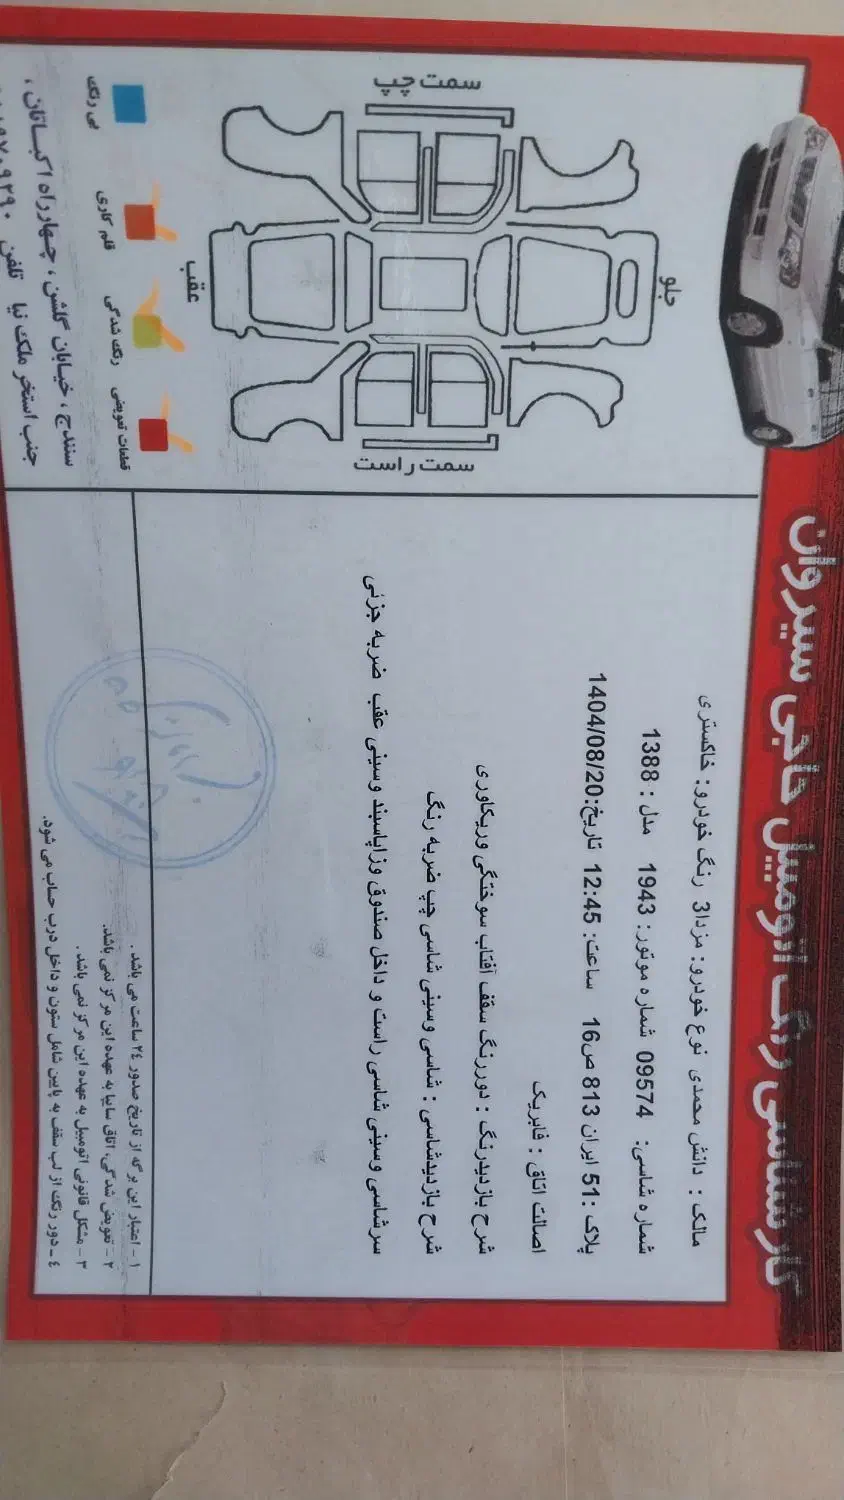 کارشناسی رنگ اتومبیل حاجی سیروان
مالک : دانش محمدی نوع خودرو: مزدا3 رنگ خودرو: خاکستری
شماره شاسی: 09574 شماره موتور: 1943 مدل : 1388
پلاک :51 ایران 813 ص16 ساعت: 12:45 تاریخ:1404/08/20
اصالت اتاق : فابریک
شرح بازدیدرنگ : دوررنگ سقف آفتاب سوختگی وریکاوری
شرح بازدیدشاسی : شاسی وسینی شاسی چپ ضربه رنگ
سرشاسی وسینی شاسی راست و داخل صندوق وزاپاسبند وسینی عقب ضربه جزئی
۱ - اعتبار این برگه از تاریخ صدور ۲۴ ساعت می باشد .
۲ - تعویض شدگی اتاق سایپا به عهده این مرکز نمی باشد.
۳ - مشکل قانونی اتومبیل به عهده این مرکز نمی باشد .
۴ - دور رنگ از لب سقف به پایین شامل ستون و داخل درب حساب می شود.
سمت چپ
جلو
عقب
سمت راست
بی رنگ
قلم کاری
رنگ شدگی
قطعات تعویضی
سنندج ، خیابان گلشن ، چهارراه اکباتان ،
جنب استخر ملک نیا تلفن